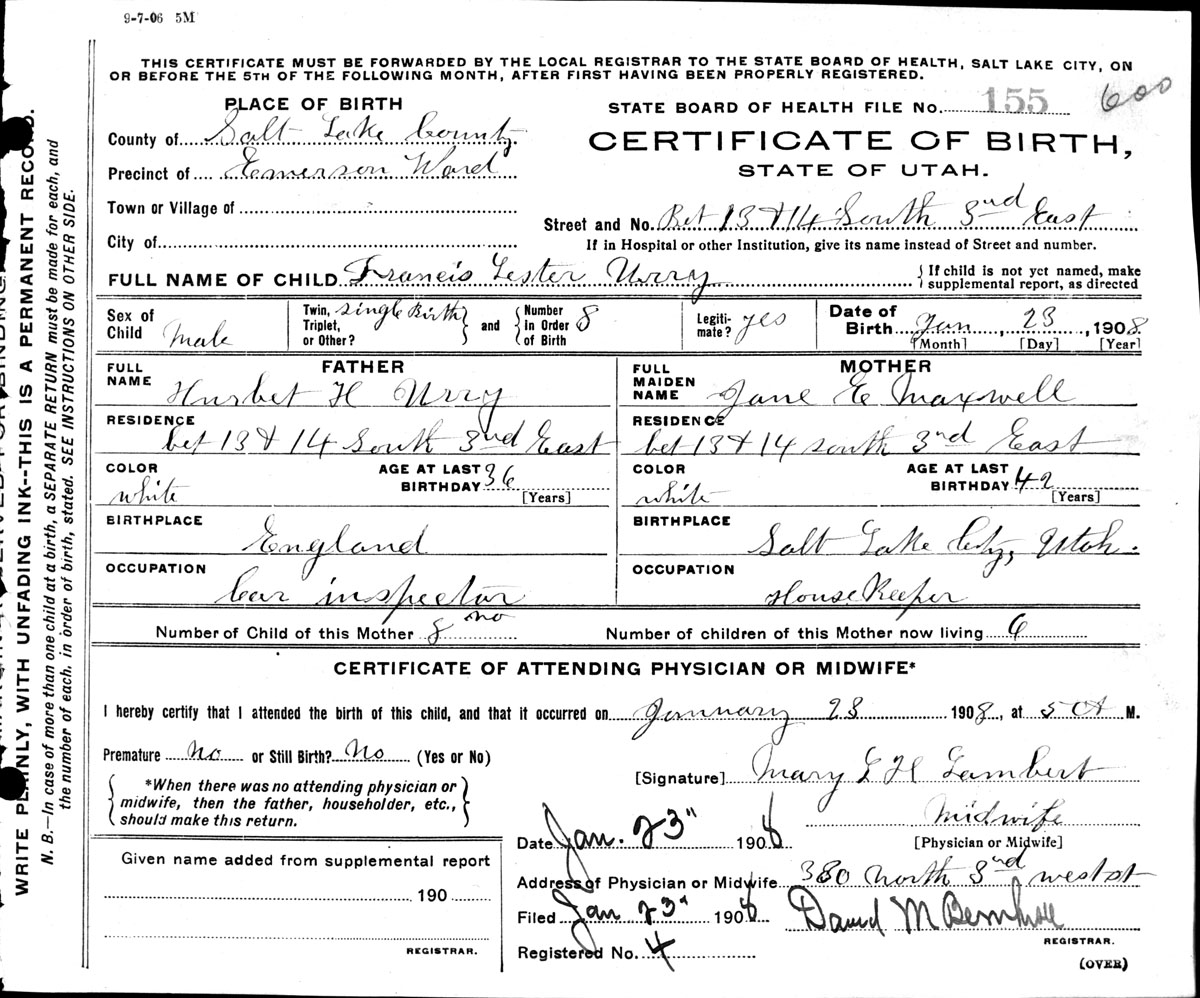 9-7-06 5M
THIS CERTIFICATE MUST BE FORWARDED BY THE LOCAL REGISTRAR TO THE STATE BOARD OF HEALTH, SALT LAKE CITY, ON
OR BEFORE THE 5TH OF THE FOLLOWING MONTH, AFTER FIRST HAVING BEEN PROPERLY REGISTERED.
PLACE OF BIRTH
County of Salt Lake County
Precinct of Emerson Ward
Town or Village of
City of
STATE BOARD OF HEALTH FILE No. 155 600
CERTIFICATE OF BIRTH,
STATE OF UTAH.
Street and No. Bet 13 & 14 South 3nd East
If in Hospital or other Institution, give its name instead of Street and number.
FULL NAME OF CHILD Francis Lester Urry
{If child is not yet named, make
supplemental report, as directed
Sex of Child Male
Twin, Triplet, or Other? single Birth
and
Number in Order of Birth 8
Legiti-mate? yes
Date of Birth Jan, 23, 1908
[Month] [Day] [Year]
FATHER
FULL NAME Hurbet H Urry
RESIDENCE bet 13 & 14 South 3nd East
COLOR white
AGE AT LAST BIRTHDAY 36 [Years]
BIRTHPLACE England
OCCUPATION Car inspector
MOTHER
FULL MAIDEN NAME Jane E Maxwell
RESIDENCE bet 13 & 14 south 3nd East
COLOR white
AGE AT LAST BIRTHDAY 42 [Years]
BIRTHPLACE Salt Lake City, Utah.
OCCUPATION House Keeper
Number of Child of this Mother 8 no
Number of children of this Mother now living 6
CERTIFICATE OF ATTENDING PHYSICIAN OR MIDWIFE*
I hereby certify that I attended the birth of this child, and that it occurred on January 23 1908, at 5 A M.
Premature No or Still Birth? No (Yes or No)
{*When there was no attending physician or
midwife, then the father, householder, etc.,
should make this return.}
[Signature] Mary L H Lambert
Midwife
[Physician or Midwife]
Date Jan. 23" 1908
Address of Physician or Midwife 330 north 3nd west st
Filed Jan 23" 1908
David M
REGISTRAR.
Registered No. 4
(OVER)
Given name added from supplemental report
190
REGISTRAR.
WRITE PLAINLY, WITH UNFADING INK--THIS IS A PERMANENT RECORD.
N. B.—In case of more than one child at a birth, a SEPARATE RETURN must be made for each, and
the number of each, in order of birth, stated. SEE INSTRUCTIONS ON OTHER SIDE.